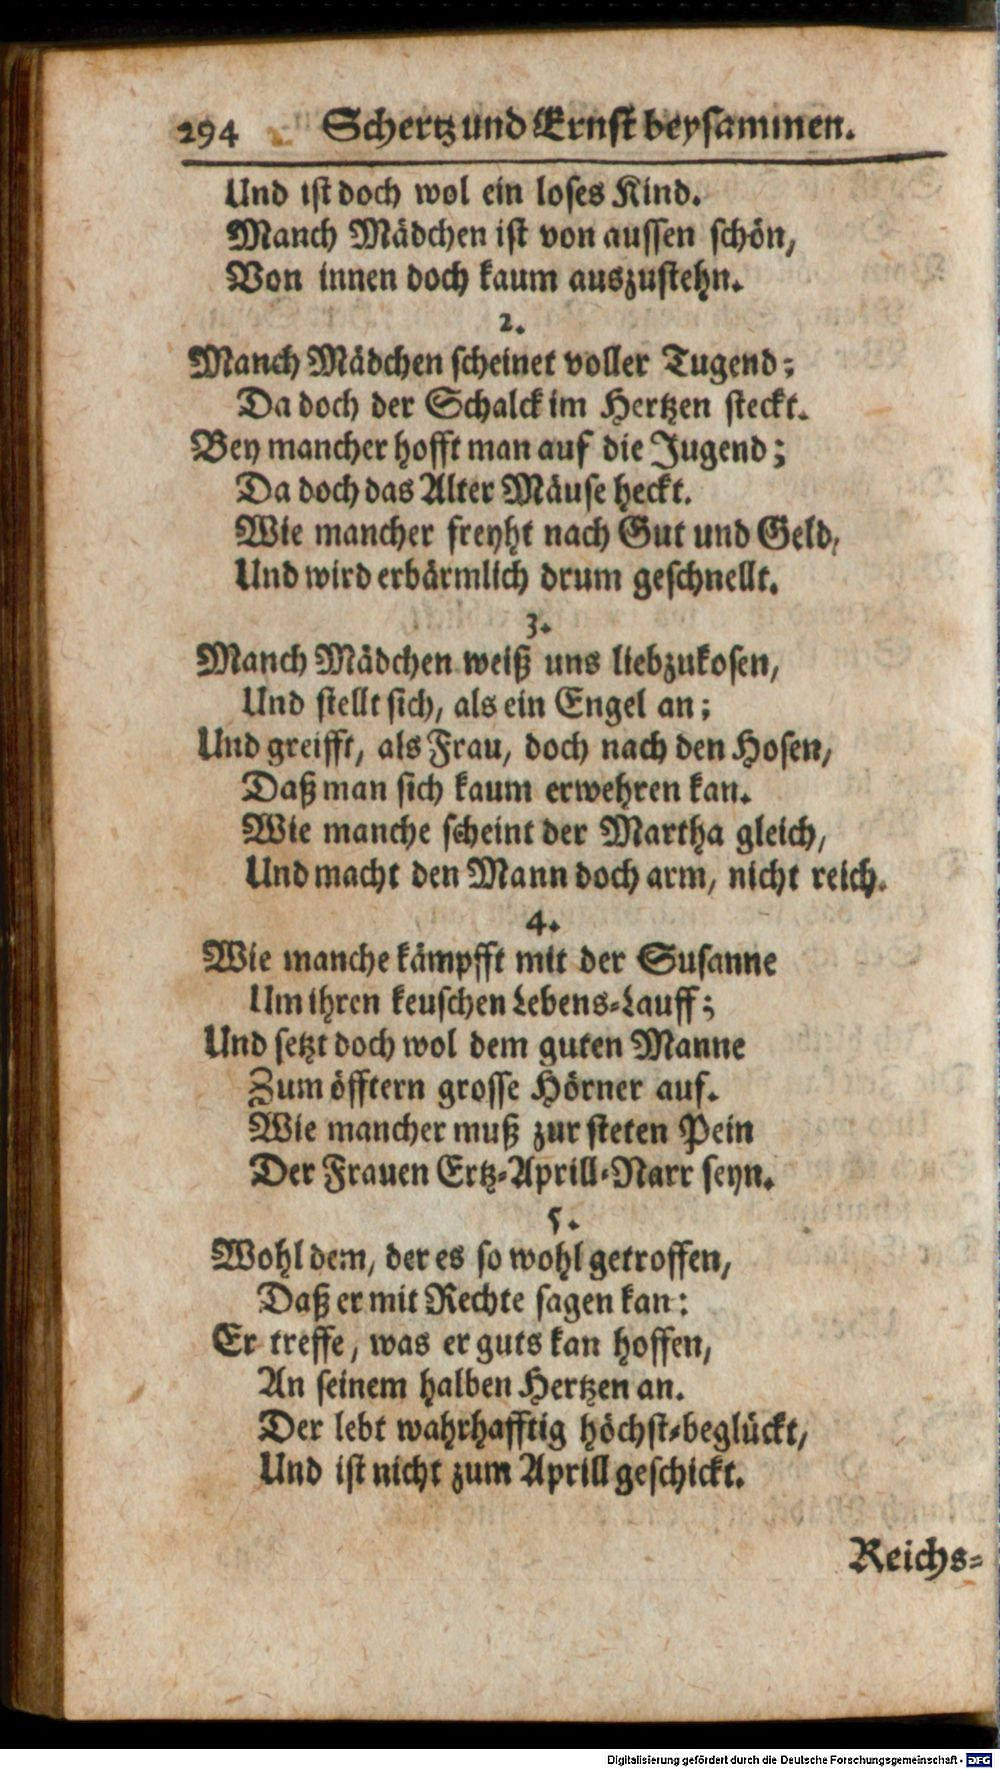 294 Schertz und Ernst beysammen.
Und ist doch wol ein loses Kind.
Manch Mädchen ist von aussen schön,
Von innen doch kaum auszustehn.
2.
Manch Mädchen scheinet voller Tugend;
Da doch der Schalck im Hertzen steckt.
Bey mancher hofft man auf die Jugend;
Da doch das Alter Mäuse heckt.
Wie mancher freyht nach Gut und Geld,
Und wird erbärmlich drum geschnellt.
3.
Manch Mädchen weiß uns liebzukosen,
Und stellt sich, als ein Engel an;
Und greifft, als Frau, doch nach den Hosen,
Daß man sich kaum erwehren kan.
Wie manche scheint der Martha gleich,
Und macht den Mann doch arm, nicht reich.
4.
Wie manche kämpfft mit der Susanne
Um ihren keuschen Lebens-Lauff;
Und setzt doch wol dem guten Manne
Zum öfftern grosse Hörner auf.
Wie mancher muß zur steten Pein
Der Frauen Ertz-Aprill-Narr seyn.
5.
Wohl dem, der es so wohl getroffen,
Daß er mit Rechte sagen kan:
Er treffe, was er guts kan hoffen,
An seinem halben Hertzen an.
Der lebt wahrhafftig höchst-beglückt,
Und ist nicht zum Aprill geschickt.
Reichs-
Digitalisierung gefördert durch die Deutsche Forschungsgemeinschaft - DFG